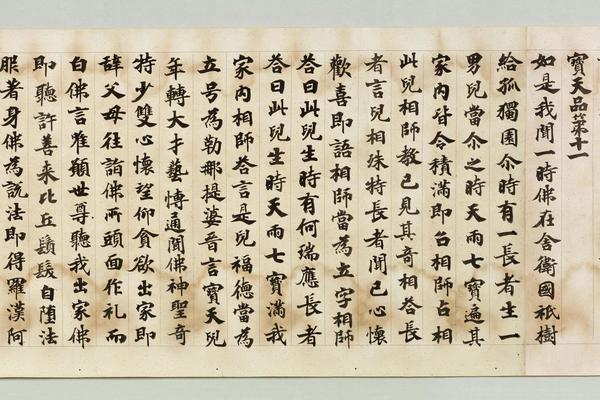 寶天品第十一
如是我聞一時佛在舍衛國祇樹
給孤獨園尒時有一長者生一
男兒當尒之時天雨七寶遍其
家内皆令積滿即召相師占相
此兒相師教已見其奇相答長
者言兒相殊特長者聞已心懷
歡喜即語相師當為立字相師
答曰此兒生時有何瑞應長者
答曰此兒生時天雨七寶滿我
家内相師答言是兒福德當為
立号為勒那提婆晉言寶天兒
年轉大才藝博通聞佛神聖奇
特少雙心懷望仰貪欲出家即
辝父母往詣佛所頭面作礼而
白佛言唯願世尊聽我出家佛
即聽許善来比丘鬚髮自墮法
服著身佛為說法即得羅漢阿